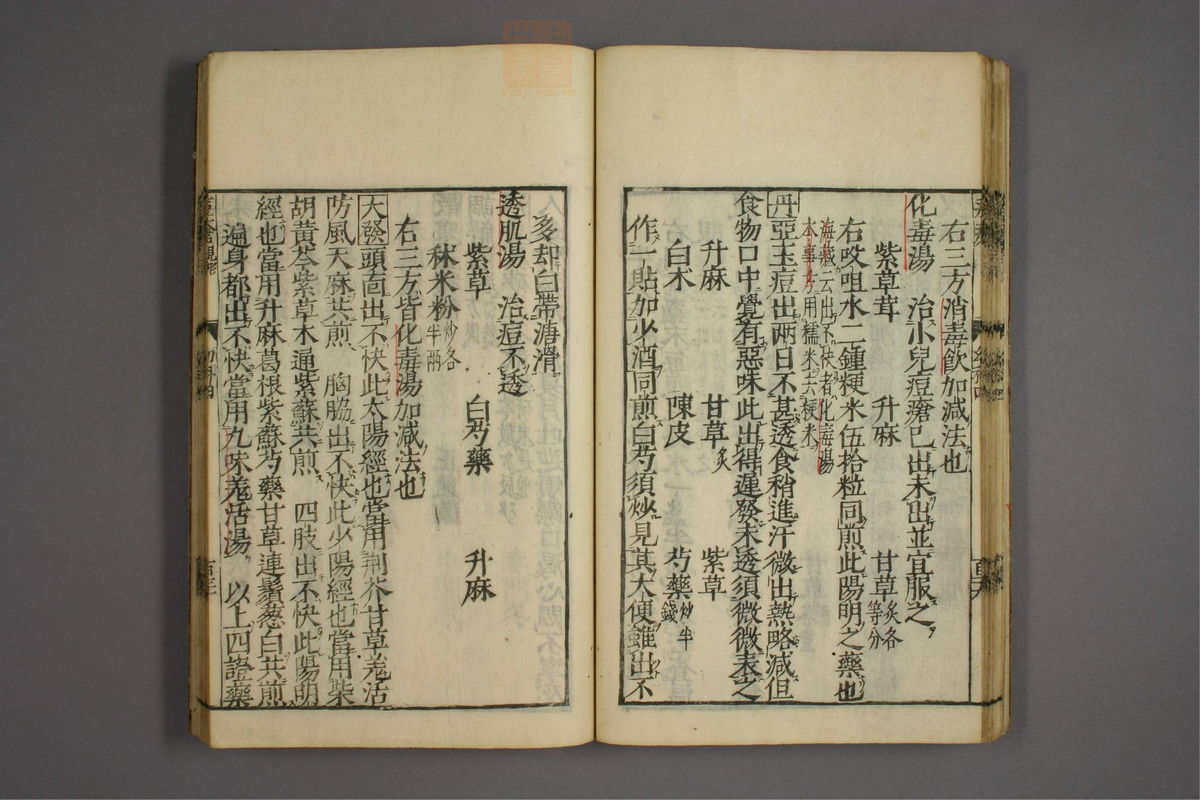 右三方消毒飲加減法也
化毒湯　治小兒痘瘡已出未出並宜服之
紫草茸　升麻　甘草炙各等分
右㕮咀水二鍾粳米伍拾粒同煎此陽明之藥也
海藏云出不快者化毒湯
本事方用糯米去粳米
丹亞玉痘出兩日不甚透食稍進汗微出熱略減但
食物口中覺有惡味此出得遲發未透須微微表之
升麻　甘草炙　紫草
白朮　陳皮　芍藥炒半錢
作一貼加少酒同煎白芍須炒見其大便雖出不
多却白帶溏滑
透肌湯　治痘不透
紫草　白芍藥　升麻
秫米粉炒各半兩
右三方皆化毒湯加減法也
大發頭面出不快此太陽經也當用荆芥甘草羌活
防風天麻共煎　胸脇出不快此少陽經也當用柴
胡黃芩紫草木通紫蘇共煎　四肢出不快此陽明
經也當用升麻葛根紫蘇芍藥甘草連鬚葱白共煎
遍身都出不快當用九味羌活湯　以上四證藥